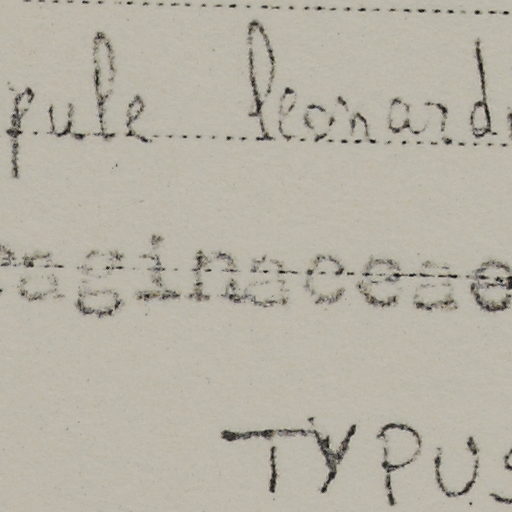 pule leonard
aginaceae
TYPUS